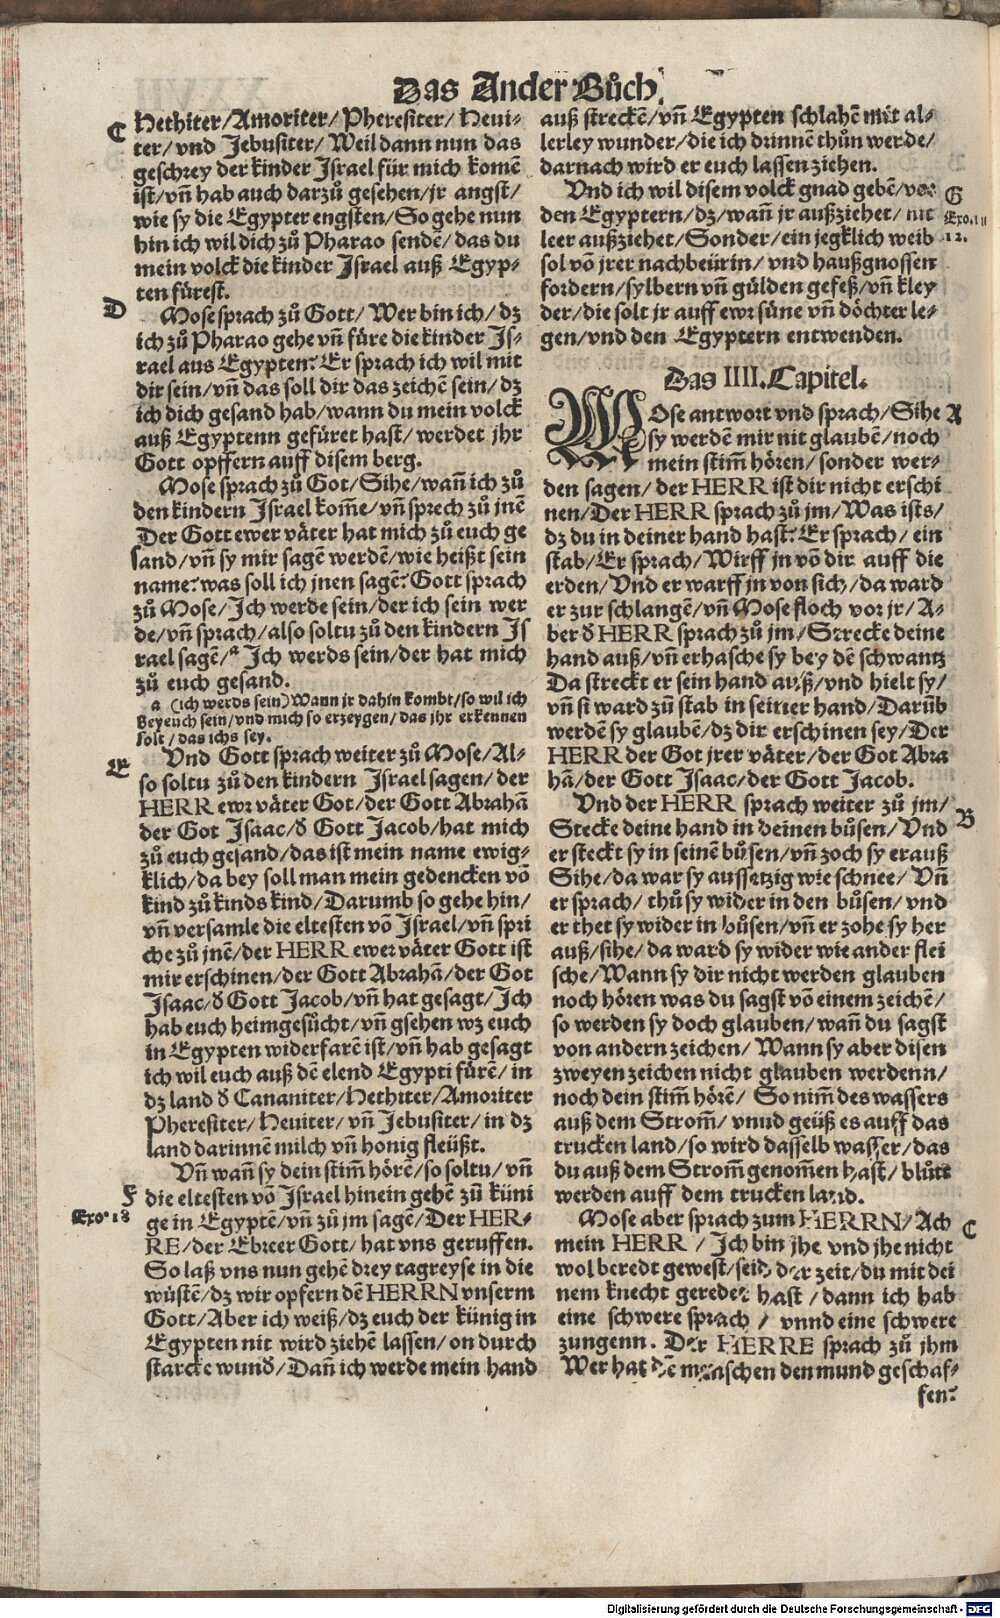 Das Ander Bůch.
C
Hethiter/Amoriter/Pheresiter/Heui-
ter/vnd Jebusiter/Weil dann nun das
geschrey der kinder Israel für mich komẽ
ist/vñ hab auch darzů gesehen/jr angst/
wie sy die Egypter engsten/So gehe nun
hin ich wil dich zů Pharao sendẽ/das du
mein volck die kinder Israel auß Egyp-
ten fürest.
D
Mose sprach zů Gott/Wer bin ich/dz
ich zů Pharao gehe vñ füre die kinder Is-
rael aus Egypten? Er sprach ich wil mit
dir sein/vñ das soll dir das zeichẽ sein/dz
ich dich gesand hab/wann du mein volck
auß Egyptenn gefüret hast/werdet jhr
Gott opffern auff disem berg.
Mose sprach zů Got/Sihe/wañ ich zů
den kindern Israel kom̃e/vñ sprech zů jnẽ
Der Gott ewer väter hat mich zů euch ge
sand/vñ sy mir sagẽ werdẽ/wie heißt sein
name? was soll ich jnen sagẽ? Gott sprach
zů Mose/Ich werde sein/der ich sein wer
de/vñ sprach/also soltu zů den kindern Is
rael sagẽ/ᵃ Ich werds sein/der hat mich
zů euch gesand.
a (ich werds sein) Wann jr dahin kombt/so wil ich
bey euch sein/vnd mich so erzeygen/das jhr erkennen
solt/das ichs sey.
E
Vnd Gott sprach weiter zů Mose/Al-
so soltu zů den kindern Israel sagen/der
HERR ewr väter Got/der Gott Abrahã
der Got Isaac/d̕ Gott Jacob/hat mich
zů euch gesand/das ist mein name ewig-
klich/da bey soll man mein gedencken võ
kind zů kinds kind/Darumb so gehe hin/
vñ versamle die eltesten võ Israel/vñ spri
che zů jnẽ/der HERR ewer väter Gott ist
mir erschinen/der Gott Abrahã/der Got
Isaac/d̕ Gott Jacob/vñ hat gesagt/Ich
hab euch heimgesůcht/vñ gsehen wz euch
in Egypten widerfarẽ ist/vñ hab gesagt
ich wil euch auß dẽ elend Egypti fürẽ/in
dz land d̕ Cananiter/Hethiter/Amoriter
Pheresiter/Heuiter/vñ Jebusiter/in dz
land darinnẽ milch vñ honig fleüßt.
Vñ wañ sy dein stim̃ hörẽ/so soltu/vñ
F
die eltesten võ Israel hinein gehẽ zů küni
Exo. 18
ge in Egyptẽ/vñ zů jm sagẽ/Der HER-
RE/der Ebreer Gott/hat vns geruffen.
So laß vns nun gehẽ drey tagreyse in die
wüstẽ/dz wir opfern dẽ HERRN vnserm
Gott/Aber ich weiß/dz euch der künig in
Egypten nit wird ziehẽ lassen/on durch
starcke wund̕/Dañ ich werde mein hand
auß streckẽ/vñ Egypten schlahẽ mit al-
lerley wunder/die ich drinnẽ thůn werde/
darnach wird er euch lassen ziehen.
Vnd ich wil disem volck gnad gebẽ/vor
G
den Egyptern/dz/wañ jr außziehet/nit
Exo. 11
leer außziehet/Sonder/ein jegklich weib
12.
sol võ jrer nachbeürin/vnd haußgnossen
fordern/sylbern vñ gülden gefeß/vñ kley
der/die solt jr auff ewr süne vñ döchter le-
gen/vnd den Egyptern entwenden.
Das IIII. Capitel.
MOse antwort vnd sprach/Sihe
A
sy werdẽ mir nit glaubẽ/noch
mein stim̃ hören/sonder wer-
den sagen/der HERR ist dir nicht erschi
nen/Der HERR sprach zů jm/Was ists/
dz du in deiner hand hast? Er sprach/ein
stab/Er sprach/Wirff jn võ dir auff die
erden/Vnd er warff jn von sich/da ward
er zur schlangẽ/vñ Mose floch vor jr/A-
ber d̕ HERR sprach zů jm/Strecke deine
hand auß/vñ erhasche sy bey dẽ schwantz
Da streckt er sein hand auß/vnd hielt sy/
vñ si ward zů stab in seiner hand/Darũb
werdẽ sy glaubẽ/dz dir erschinen sey/Der
HERR der Got jrer väter/der Got Abra
hã/der Gott Isaac/der Gott Jacob.
Vnd der HERR sprach weiter zů jm/
B
Stecke deine hand in deinen bůsen/Vnd
er steckt sy in seinẽ bůsen/vñ zoch sy erauß
Sihe/da war sy aussetzig wie schnee/Vñ
er sprach/thů sy wider in den bůsen/vnd
er thet sy wider in bůsen/vñ er zohe sy her
auß/sihe/da ward sy wider wie ander flei
sche/Wann sy dir nicht werden glauben
noch hören was du sagst võ einem zeichẽ/
so werden sy doch glauben/wañ du sagst
von andern zeichen/Wann sy aber disen
zweyen zeichen nicht glauben werdenn/
noch dein stim̃ hörẽ/So nim̃ des wassers
auß dem Strom̃/vnnd geüß es auff das
trucken land/so wird dasselb wasser/das
du auß dem Strom̃ genom̃en hast/blůte
werden auff dem trucken land.
Mose aber sprach zum HERRN/Ach
C
mein HERR/Ich bin jhe vnd jhe nicht
wol beredt gewest/seid der zeit/du mit dei
nem knecht geredet hast/dann ich hab
eine schwere sprach/vnnd eine schwere
zungenn. Der HERRE sprach zů jhm
Wer hat dẽ menschen den mund geschaf-
fen?
Digitalisierung gefördert durch die Deutsche Forschungsgemeinschaft - DFG